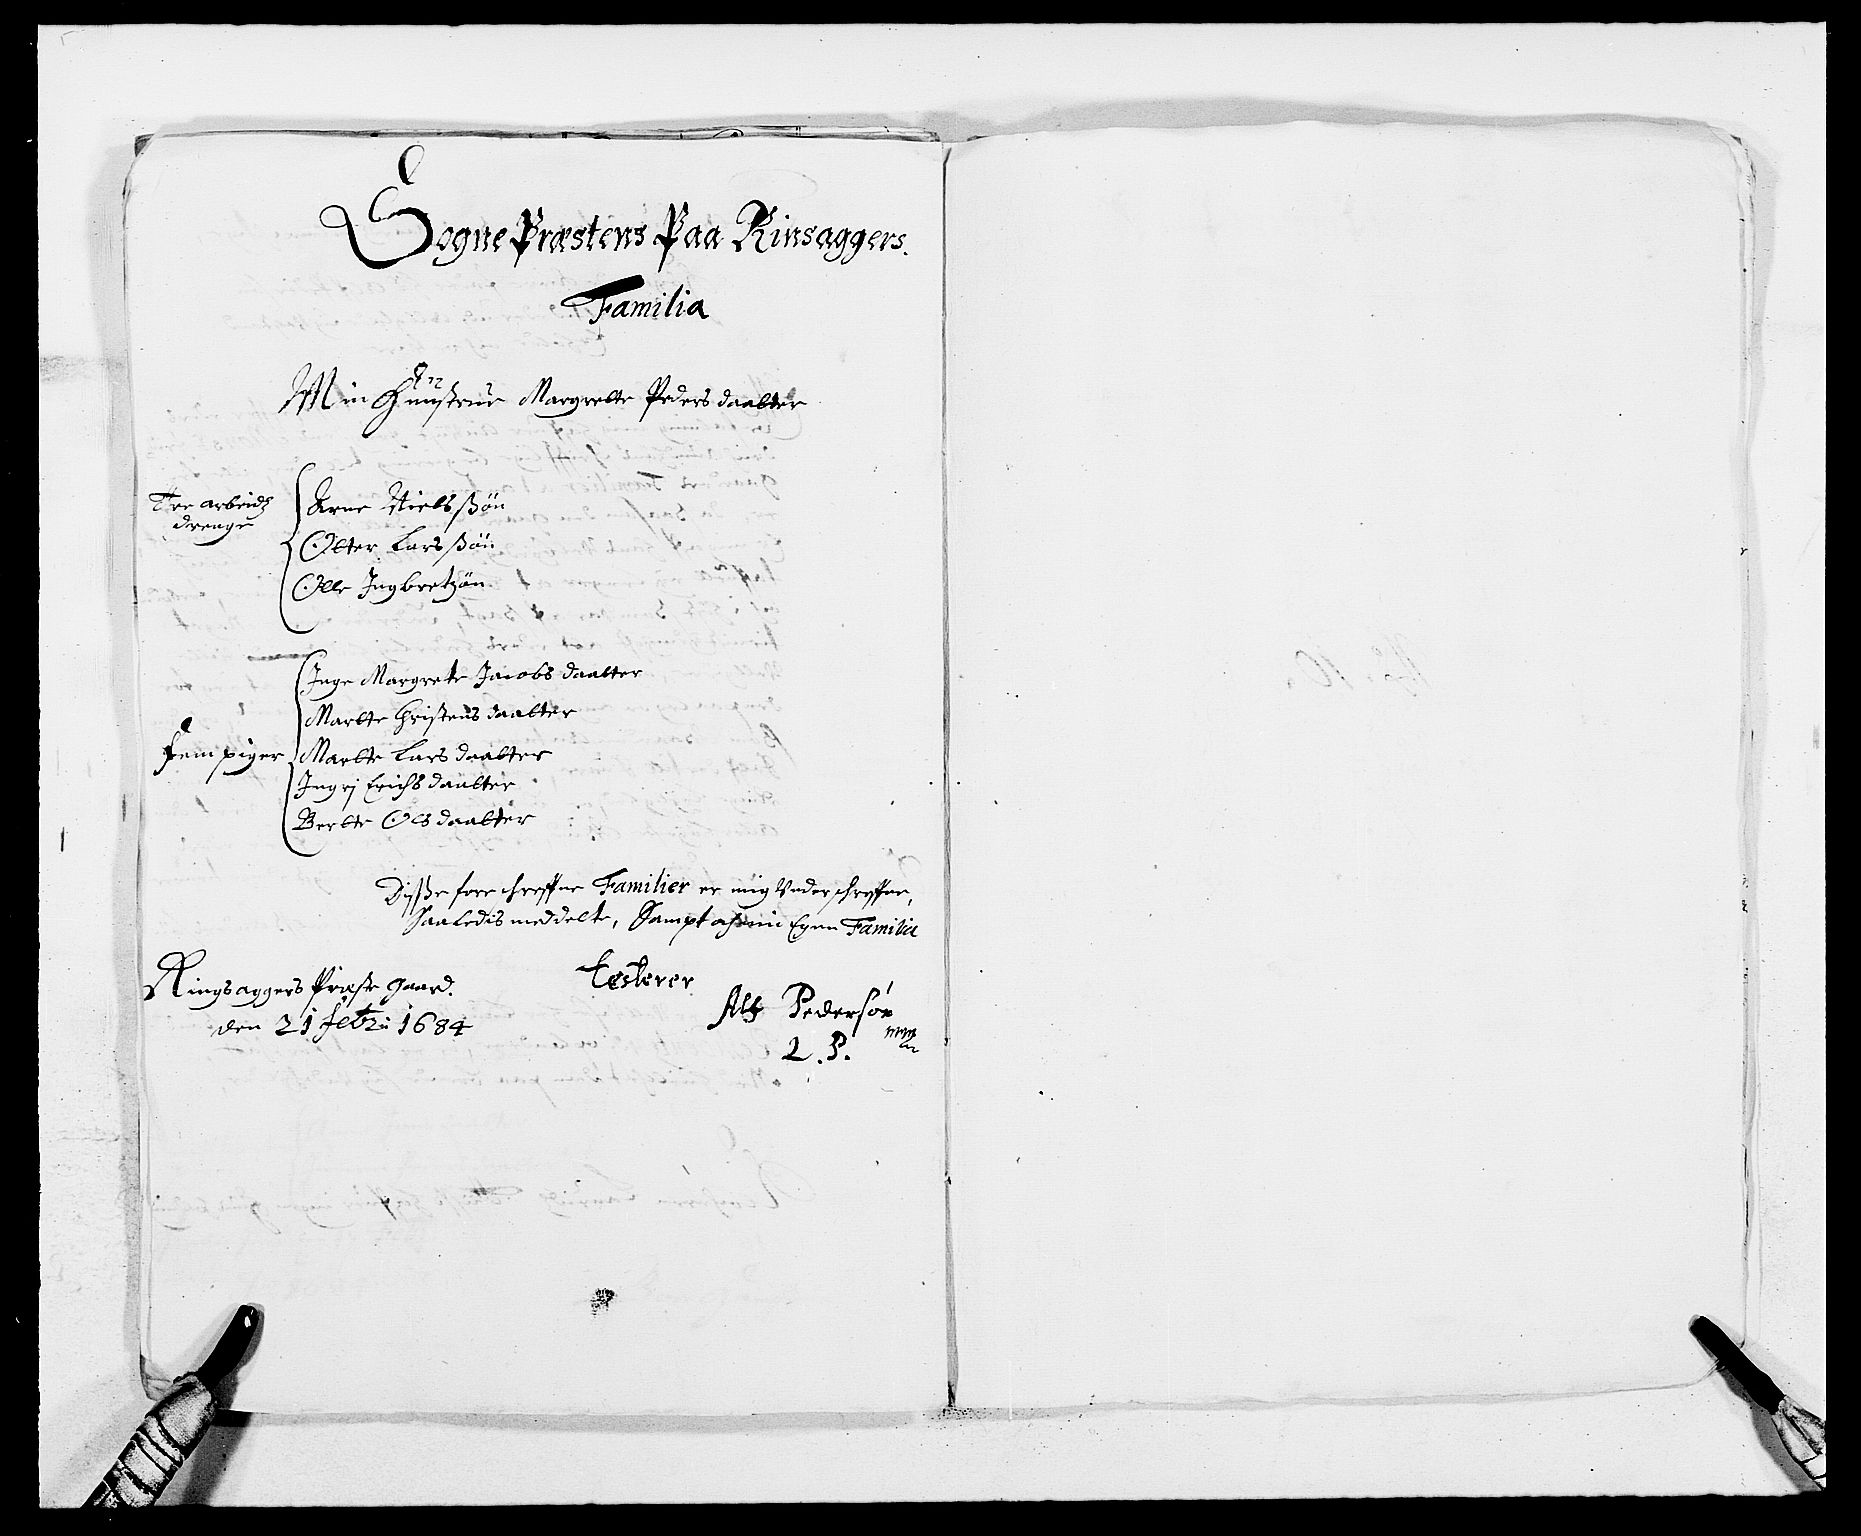 Sogne Præstens Paa Rinsaggers.
Familia
Min Hunstrue Margrette Peders daatter
Tre arbeidz
drenge
Arne Nielssøn
Otter Larssøn
Olle Ingbretzøn
Fem piger
Inge Margrete Jacobs daatter
Marte Christens daatter
Marte Lars daatter
Ingrj Erichs daatter
Berte Ols daatter
Disse foreschreffne Familier er mig Underschreffne,
Saaledis meddelte, Sampt och min Egen Familia
Testerer
Ringsaggers Præste Gaard.
den 21 febru 1684
Alf Pedersøn
mm